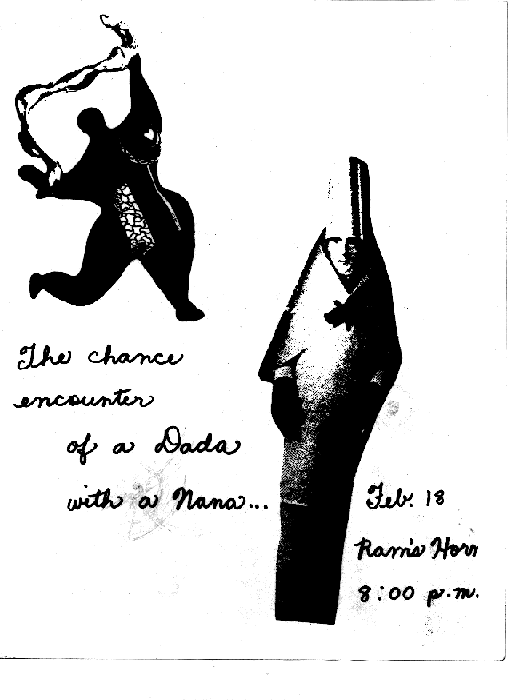 The chance
encounter
of a Dada
with a Nana...
Feb. 18
Ram's Horn
8:00 p.m.